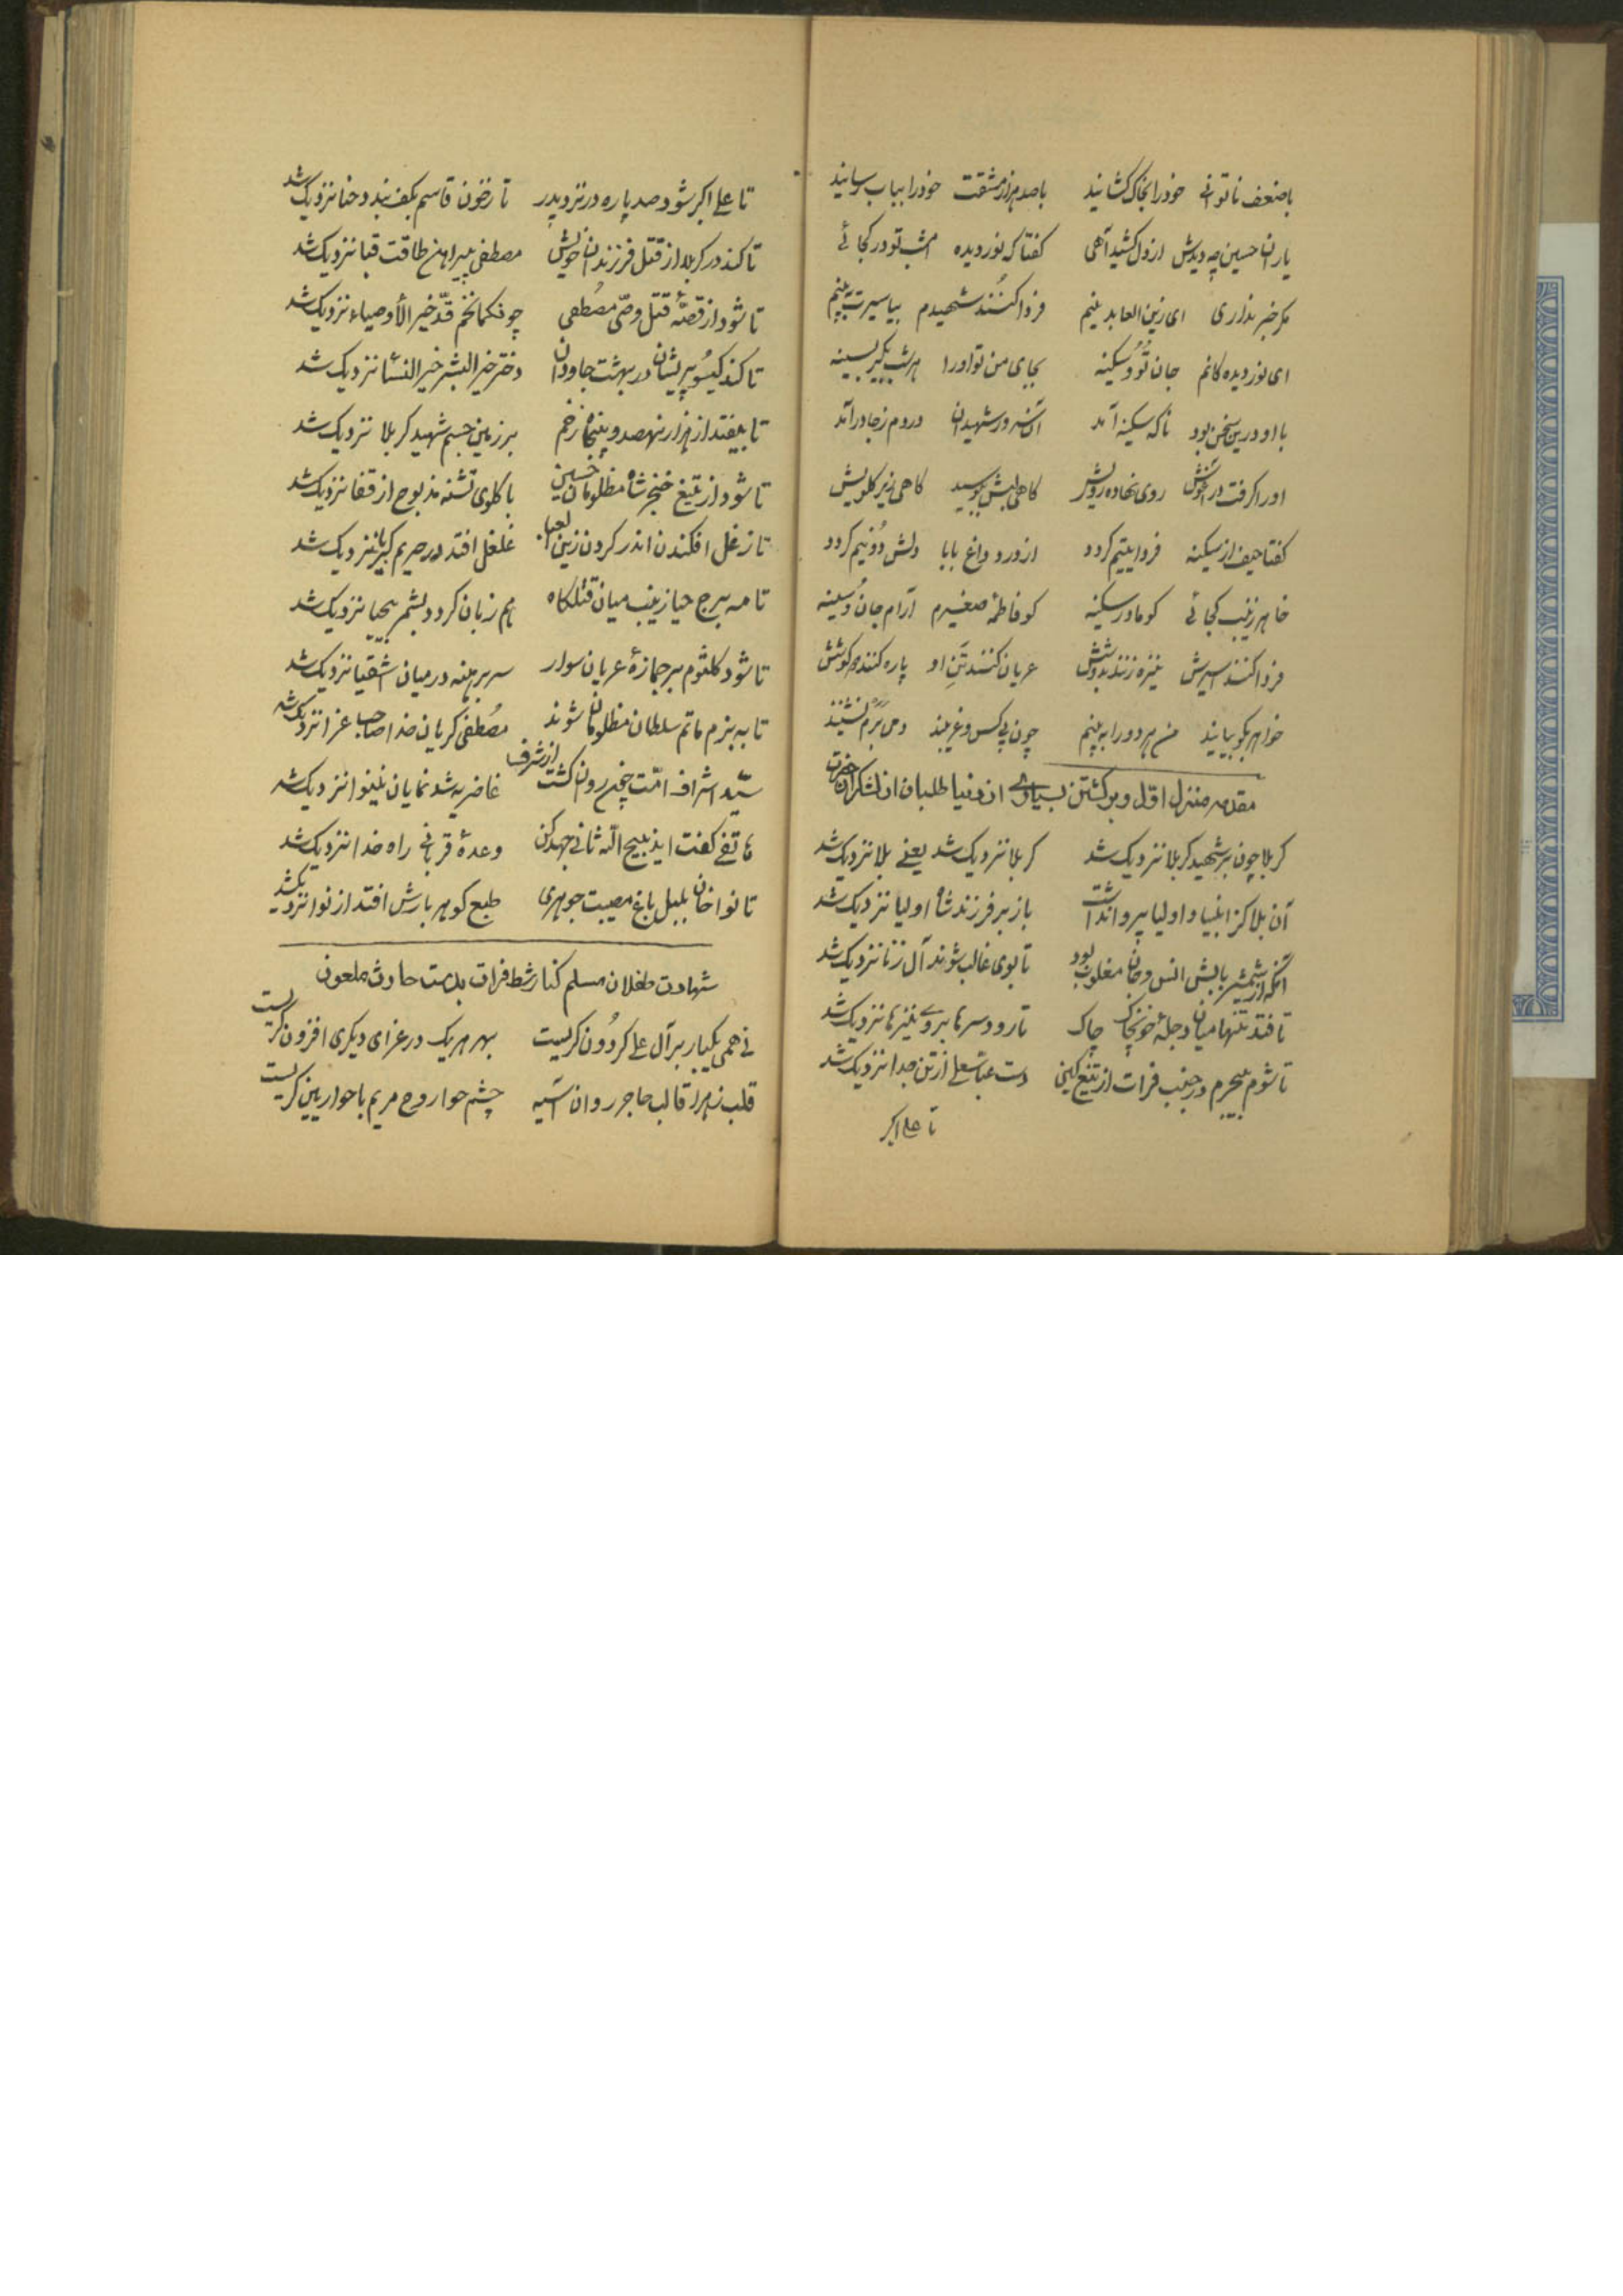 باضعف ناتوانی خودرا بخاک کشانید باصدهزار مشقت خودرا بباب رسانید
یاران حسین چه دیدش ازدل کشید آهی کفتاکه نوردیده امشب تودر کجائی
مکر خبر نداری ای زین العابدینم فردا کنند شهیدم بیا سیرت به بینم
ای نوردیده کانم جان تو و سکینه بجای من تو اورا هرشب بکیر بسینه
با او درین سخن بود ناکه سکینه آمد آن سرور شهیدان دردم زجا درآمد
اورا کرفت درآغوش روی نهاده رویش کاهی لبش ببوسید کاهی زیر کلویش
کفتا حیف از سکینه فردا یتیم کردد ازدرد و داغ بابا دلش دونیم کردد
خاهر زینب کجائی کو مادر سکینه کو فاطمه صغیرم آرام جان و سینه
فردا کنند اسیرش نیزه زنند بدوشش عریان کنند تن او پاره کنند کوشش
خواهر بکو بیایند من هردورا به بینم چون بی کس و غریبند دمی برم نشینند
مقدمه منزل اول و برکشتن بسیاری از دنیا طلبان از لشکر آن حضرت
کربلا چون برشهید کربلا نزدیک شد کربلا نزدیک شد یعنی بلا نزدیک شد
آن بلا کز انبیا و اولیا پروا نداشت باز بر فرزند شاه اولیا نزدیک شد
آنکه از شمشیر بابش انس و جان مغلوب بود تابوی غالب شوند آل زنا نزدیک شد
تافتد تنها میان دجلهٔ خون چاک چاک تارود سرها بروی نیزها نزدیک شد
تاشوم بیجرم درجنب فرات از تیغ کین دست عباس علی ازتن جدا نزدیک شد
تا علی اکبر
تا علی اکبر شود صد پاره در نزد پدر تا زخون قاسم بکف بندد حنا نزدیک شد
تا کند در کربلا از قتل فرزندان خویش مصطفی پیراهن طاقت قبا نزدیک شد
تا شود از قصهٔ قتل وصی مصطفی چون کمان خم قد خیر الأوصیاء نزدیک شد
تا کند کیسو پریشان در بهشت جاودان دختر خیر البشر خیر النسا نزدیک شد
تا بیفتد از هزار و نهصد و پنجاه زخم بر زمین جسم شهید کربلا نزدیک شد
تا شود از تیغ خنجر شاه مظلومان حسین با کلوی تشنه مذبوح از قفا نزدیک شد
تا زغل افکندن اندر کردن زین العبا غلغل افتد در حریم کبریا نزدیک شد
تا مه برج حیا زینب میان قتلکاه هم زبان کردد بشمر بیحیا نزدیک شد
تا شود کلثوم بر جمازهٔ عریان سوار سر برهنه در میان اشقیا نزدیک شد
تا به بزم ماتم سلطان مظلومان شوند مصطفی کریان خدا صاحب عزا نزدیک شد
سید اشراف امت چون برون کشت از شرف غاضریه شد نمایان نینوا نزدیک شد
هاتفی کفت ایذبیح الله ثانی جهد کن وعدهٔ قربانی راه خدا نزدیک شد
تا نواخان بلبل باغ مصیبت جوهری طبع کوهر بارش افتد از نوا نزدیک شد
شهادت طفلان مسلم کنار شط فرات بدست حارث ملعون
نی همی یکبار بر آل علی کردون کریست بهر هر یک در عزای دیکری افزون کریست
قلب زهرا قالب هاجر روان آسیه چشم حوا روح مریم با حواریین کریست